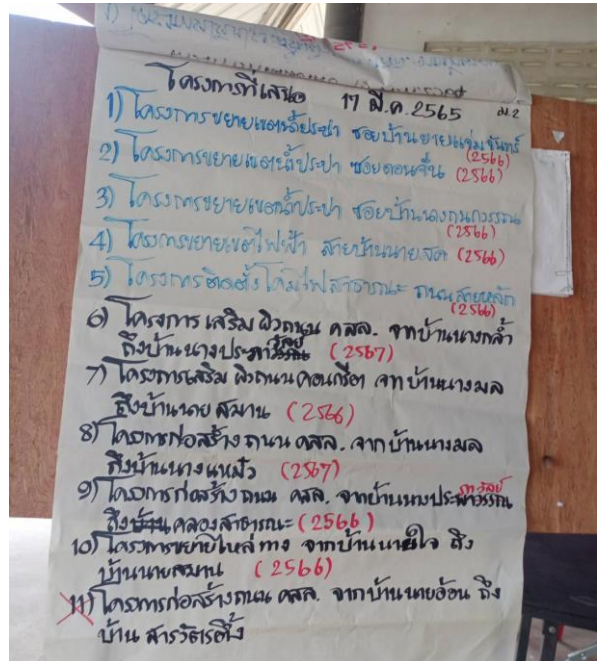 โครงการที่เสนอ 17 มี.ค. 2565 ม.2
1) โครงการขยายเขตน้ำประปา ซอยบ้านยายแจ่มจันทร์
(2566)
2) โครงการขยายเขตน้ำประปา ซอยดอนจั่น (2566)
3) โครงการขยายเขตน้ำประปา ซอยบ้านนาง
(2566)
4) โครงการขยายเขตไฟฟ้า สายบ้านนายสด (2566)
5) โครงการติดตั้งโคมไฟสาธารณะ ถนนสายหลัก
(2566)
6) โครงการเสริมผิวถนน คสล. จากบ้านนางกล่ำ
ถึงบ้านนางประภาวัลย์ (2567)
7) โครงการเสริมผิวถนนคอนกรีต จากบ้านนางมล
ถึงบ้านนายสมาน (2566)
8) โครงการก่อสร้างถนน คสล. จากบ้านนางมล
ถึงบ้านนางแหม๋ว (2567)
9) โครงการก่อสร้างถนน คสล. จากบ้านนางประภาวัลย์
ถึงคลองสาธารณะ (2566)
10) โครงการขยายไหล่ทาง จากบ้านนายใจ ถึง
บ้านนายสมาน (2566)
11) โครงการก่อสร้างถนน คสล. จากบ้านนายอ้อน ถึง
บ้าน สารวัตรตึ๋ง